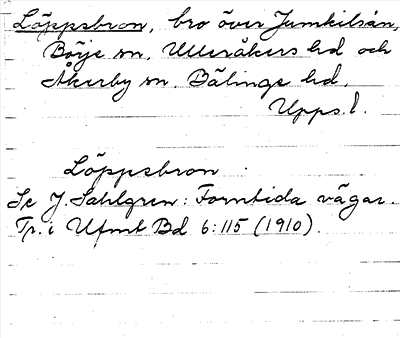 Löppsbron, bro över Jumkilsån,
Börje sn, Ulleråkers hd och
Åkerby sn, Bälinge hd,
Upps. l.
Löppsbron
Se J. Sahlgren: Forntida vägar.
Tr. i Ufmt Bd 6:115 (1910).